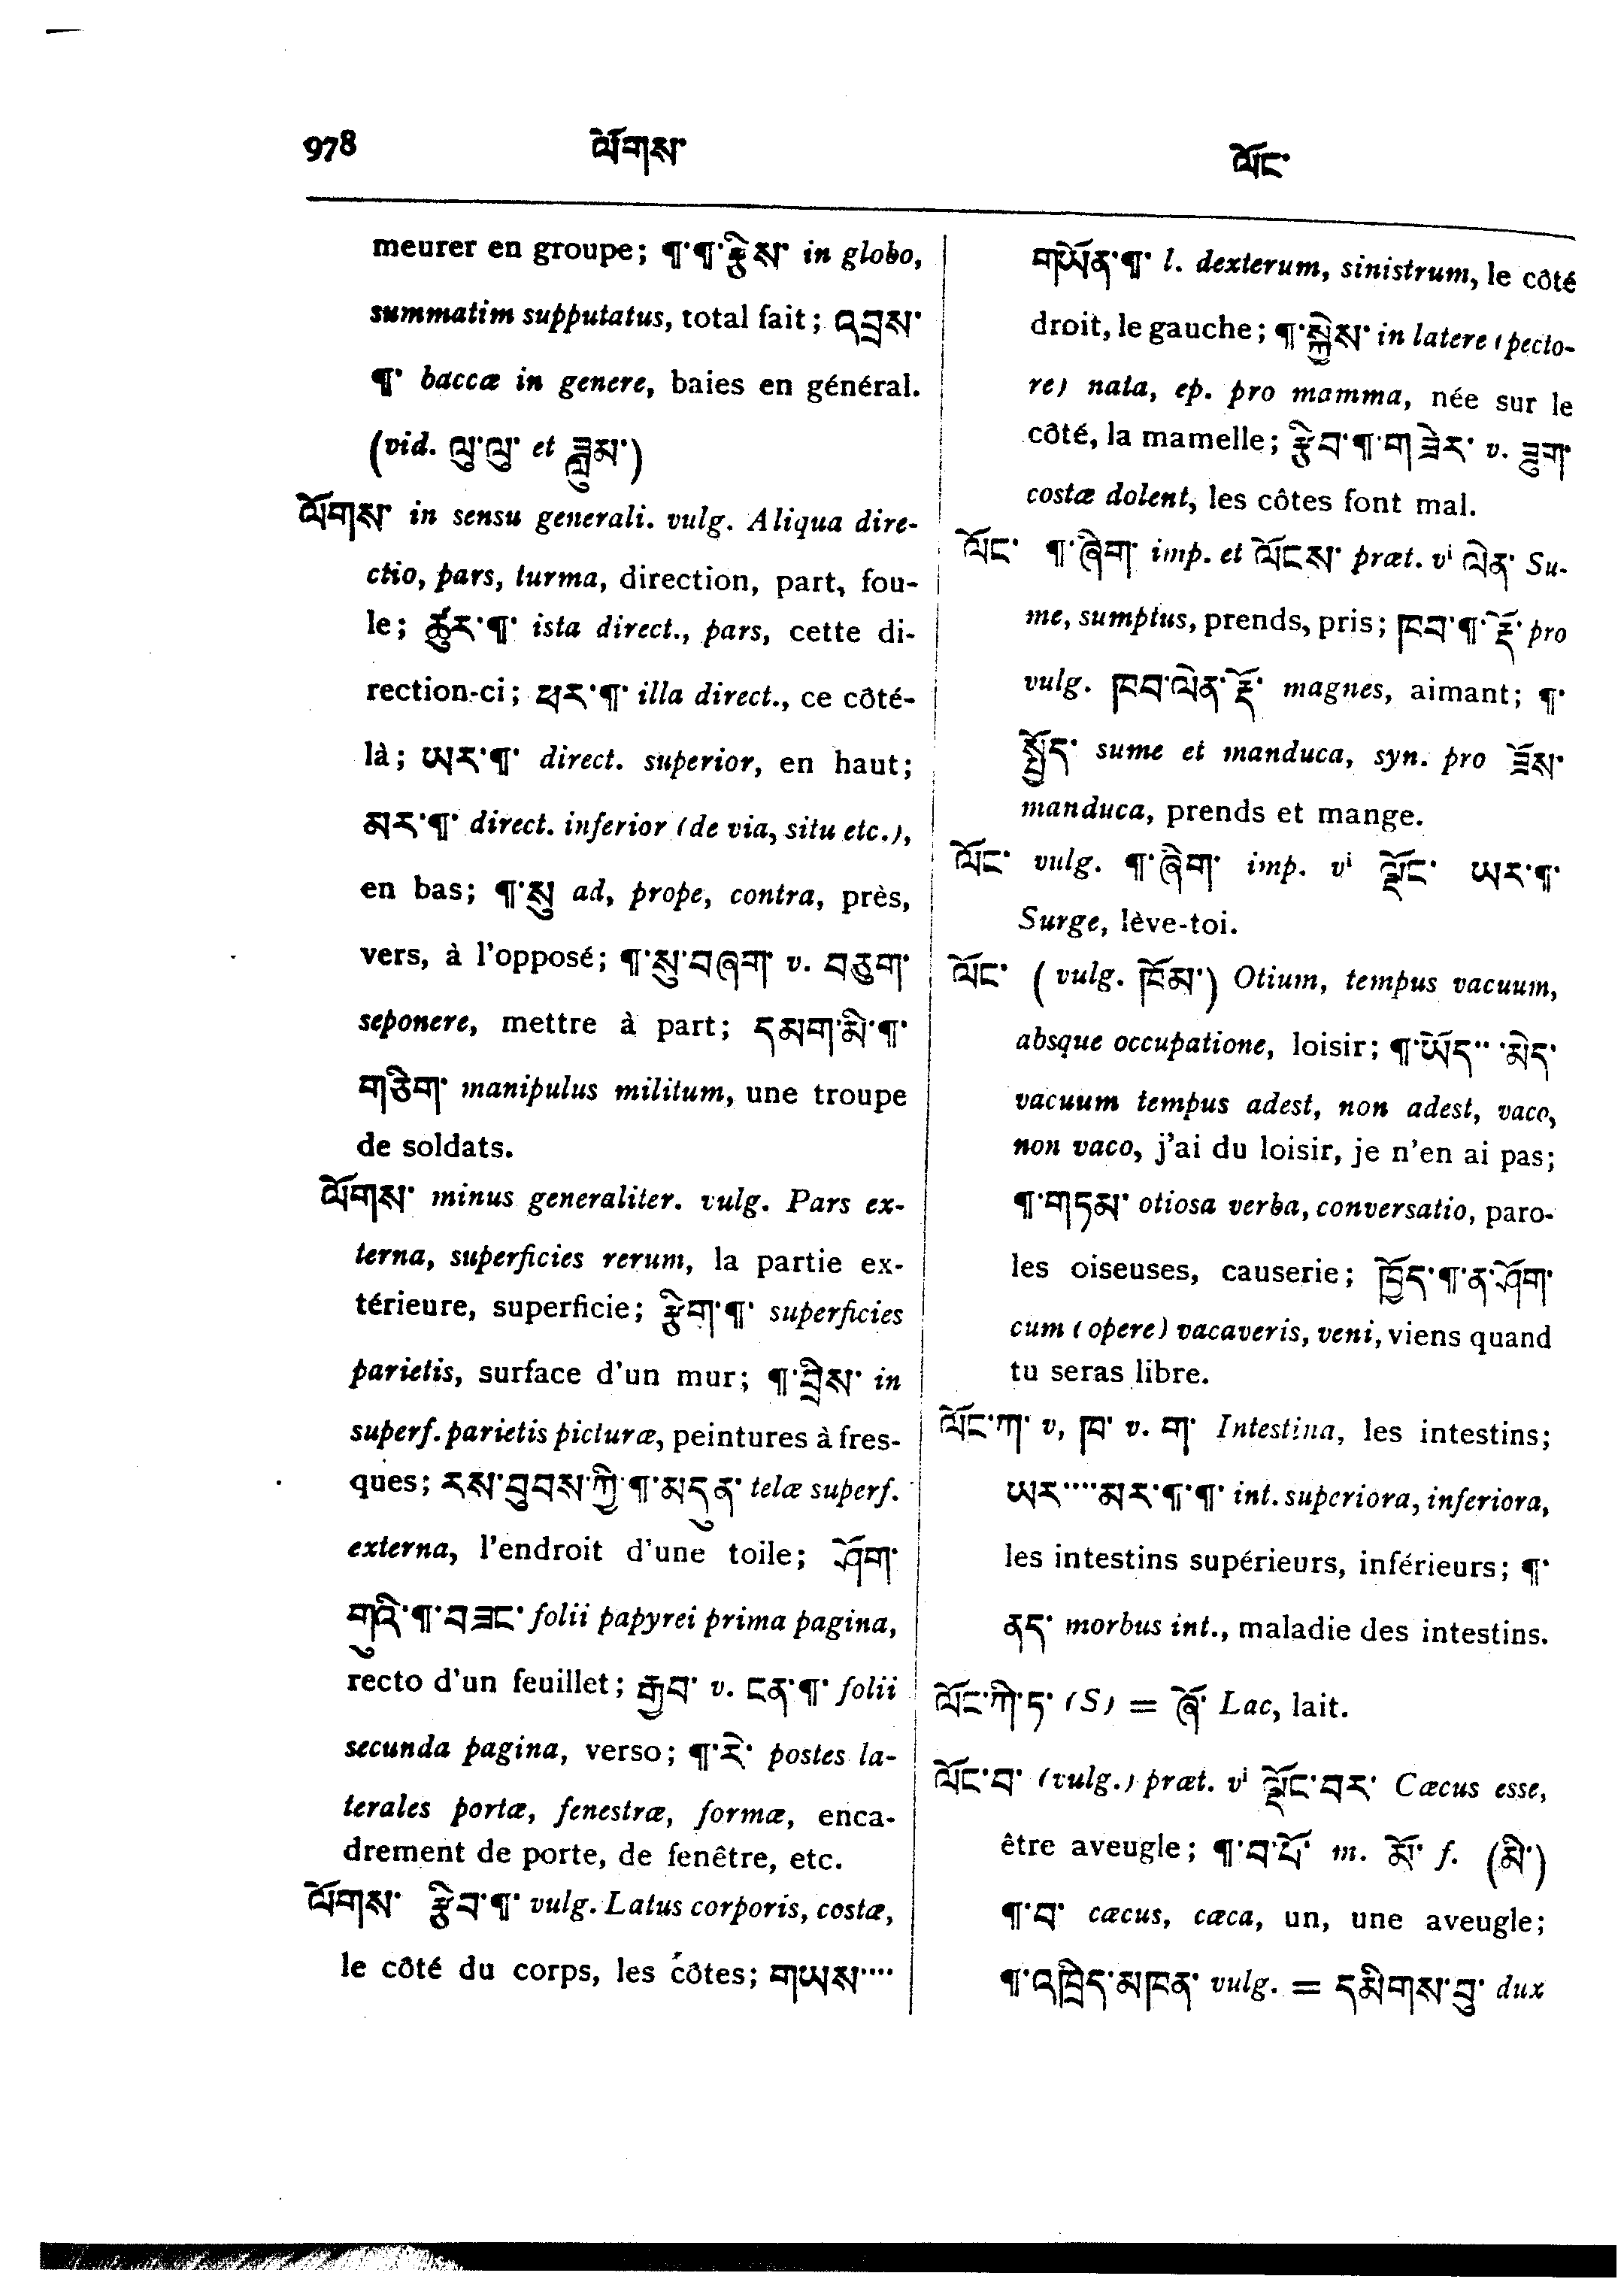 978 ལོགས་ ལོང་
meurer en groupe; ¶་¶་རྩིས་ in globo,
summatim supputatus, total fait; འབྲས་
¶་ baccæ in genere, baies en général.
(vid. ལུ་ལུ་ et ཟླུམ་)
ལོགས་ in sensu generali. vulg. Aliqua dire-
ctio, pars, turma, direction, part, fou-
le; ཚུར་¶་ ista direct., pars, cette di-
rection-ci; ཕར་¶་ illa direct., ce côté-
là; ཡར་¶་ direct. superior, en haut;
མར་¶་ direct. inferior (de via, situ etc.),
en bas; ¶་སུ ad, prope, contra, près,
vers, à l'opposé; ¶་སུ་བཞག་ v. བཅུག་
seponere, mettre à part; དམག་མི་¶་
གཅིག་ manipulus militum, une troupe
de soldats.
ལོགས་ minus generaliter. vulg. Pars ex-
terna, superficies rerum, la partie ex-
térieure, superficie; རྩིག་¶་ superficies
parietis, surface d'un mur; ¶་བྲིས་ in
superf. parietis picturæ, peintures à fres-
ques; རས་བུབས་ཀྱི་¶་མདུན་ telæ superf.
externa, l'endroit d'une toile; ཤོག་
གུའི་¶་བཟང་ folii papyrei prima pagina,
recto d'un feuillet; རྒྱབ་ v. ངན་¶་ folii
secunda pagina, verso; ¶་རེ་ postes la-
terales portæ, fenestræ, formæ, enca-
drement de porte, de fenêtre, etc.
ལོགས་ རྩིབ་¶་ vulg. Latus corporis, costæ,
le côté du corps, les côtes; གཡས་····
གཡོན་¶་ l. dexterum, sinistrum, le côté
droit, le gauche; ¶་སྐྱེས་ in latere (pecto-
re) nata, ep. pro mamma, née sur le
côté, la mamelle; རྩིབ་¶་གཟེར་ v. ཟུག་
costæ dolent, les côtes font mal.
ལོང་ ¶་ཞིག་ imp. et ལོངས་ præt. vⁱ ལེན་ Su-
me, sumptus, prends, pris; ཁབ་¶་རྡོ་ pro
vulg. ཁབ་ལེན་རྡོ་ magnes, aimant; ¶་
སྤྱོད་ sume et manduca, syn. pro ཟོས་
manduca, prends et mange.
ལོང་ vulg. ¶་ཞིག་ imp. vⁱ ལྡོང་ ཡར་¶་
Surge, lève-toi.
ལོང་ (vulg. ཁོམ་) Otium, tempus vacuum,
absque occupatione, loisir; ¶་ཡོད་་ ་མེད་
vacuum tempus adest, non adest, vaco,
non vaco, j'ai du loisir, je n'en ai pas;
¶་གཏམ་ otiosa verba, conversatio, paro-
les oiseuses, causerie; ཁྱོད་¶་ན་ཤོག་
cum (opere) vacaveris, veni, viens quand
tu seras libre.
ལོང་ཀ་ v, ཁ་ v. ག་ Intestina, les intestins;
ཡར་····མར་¶་¶་ int. superiora, inferiora,
les intestins supérieurs, inférieurs; ¶་
ནད་ morbus int., maladie des intestins.
ལོང་ཀི་ཏ་ (S) = ཞོ་ Lac, lait.
ལོང་བ་ (vulg.) præt. vⁱ ལྡོང་བར་ Cæcus esse,
être aveugle; ¶་བ་པོ་ m. མོ་ f. (མི་)
¶་བ་ cæcus, cæca, un, une aveugle;
¶་འཁྲིད་མཁན་ vulg. = དམིགས་བུ་ dux